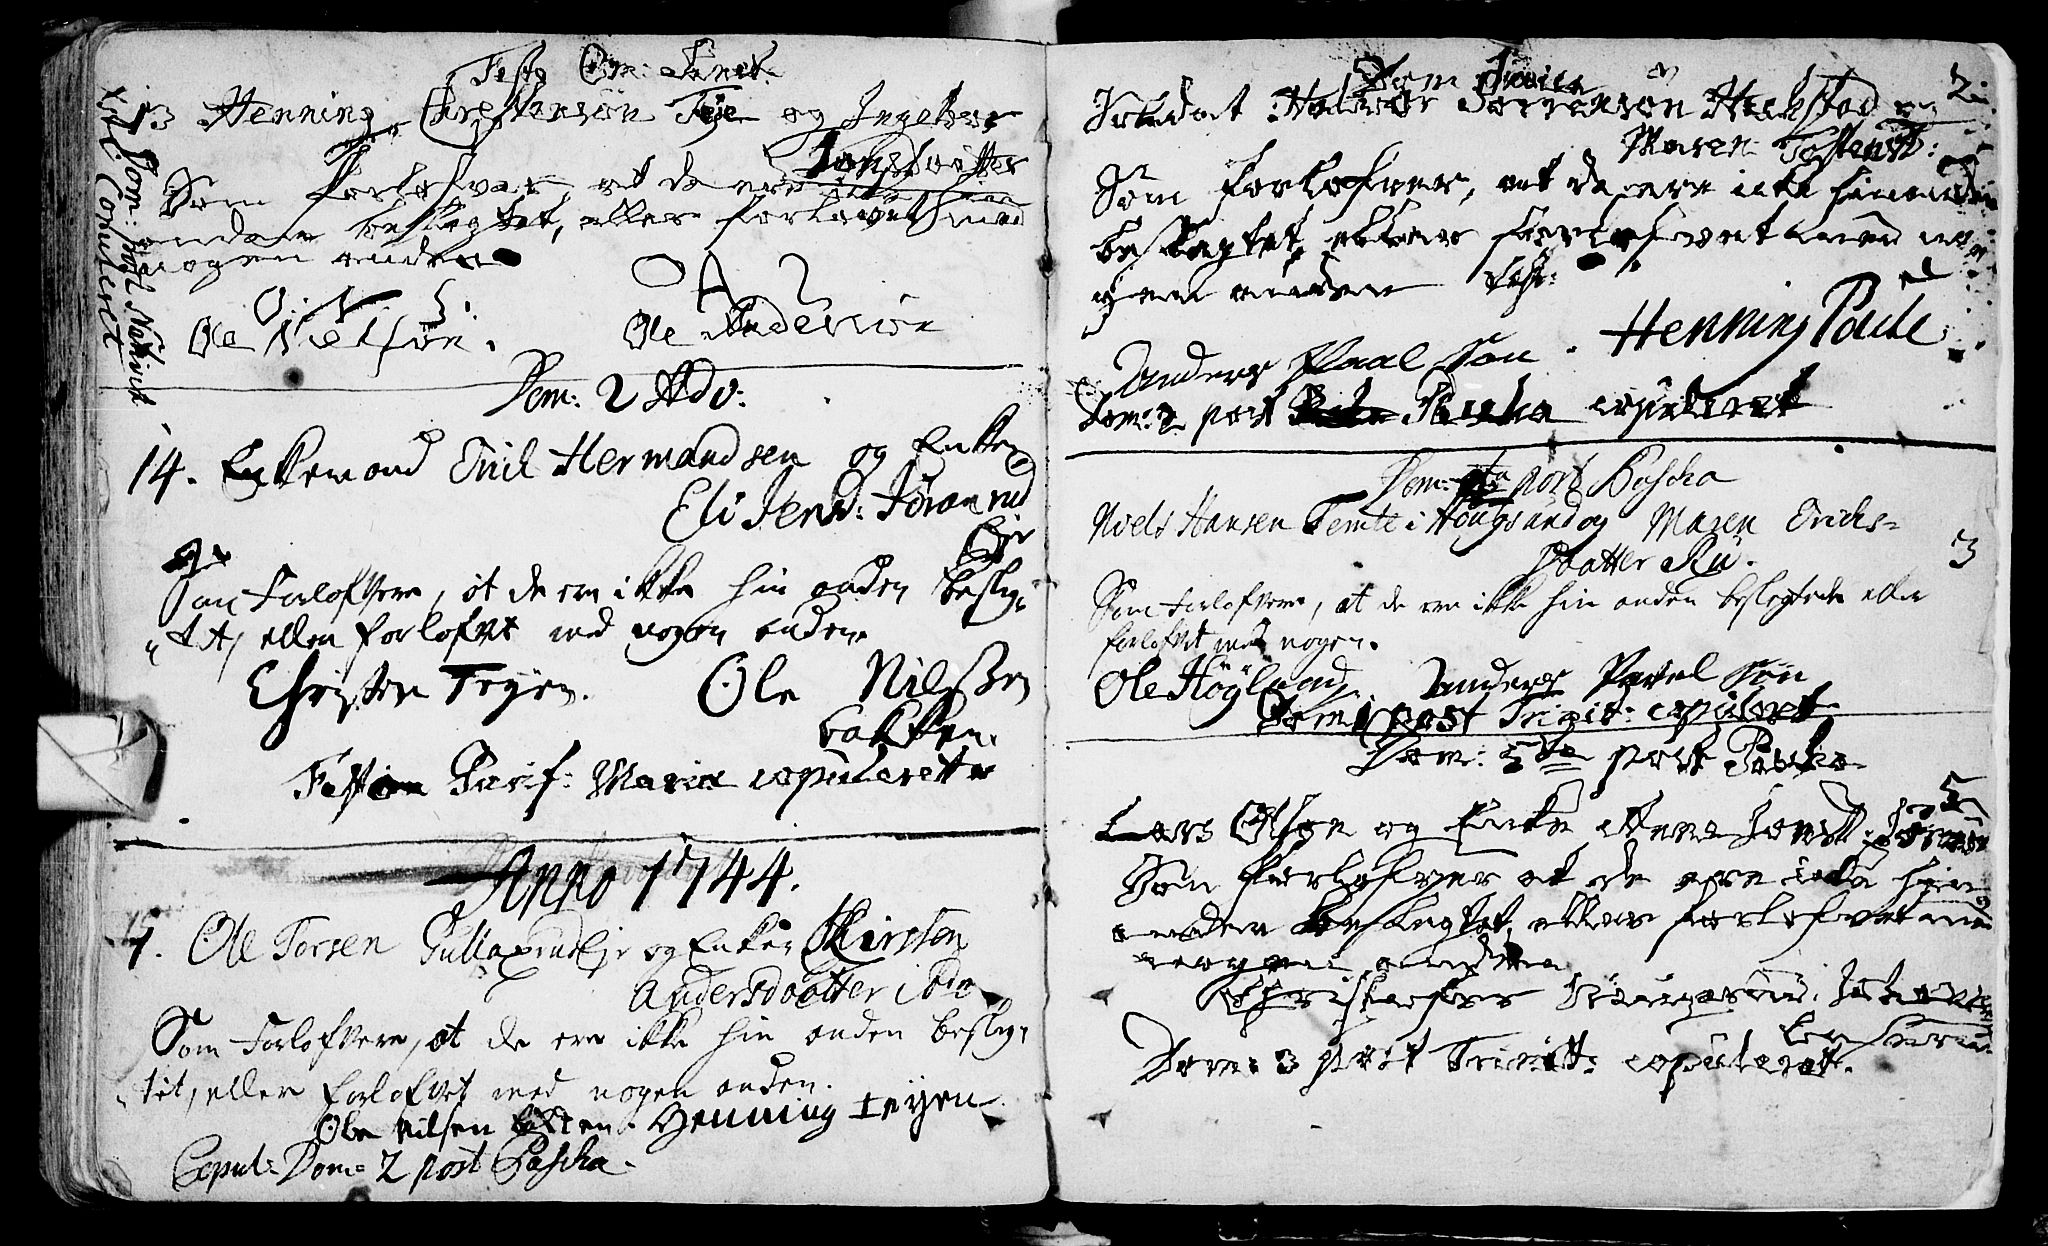 Festo Om: Sanct.
13 Henning Christensøn Teje og Ingebor
Jonsdaatter
Som forlofver, at de ere
anden beslegtet, eller forlovet med
nogen anden
O. N. S. O A S
Ole Nielsøn. Ole Andersøn
Dom: post Nativit
Copuleret
Dom: 2 Adv:
14. Enkemand Erick Hermandsen og Enken
Eli Jensd: Joramrud
Som Forlofvere, at de ere ikke hin anden besleg
tet, eller forlofvet med nogen anden.
Christen Teyen. Ole Nilsen
bakken.
Festo Purif: Mariæ copulerette
Anno 1744.
1. Ole Torsen og Enken Kirsten
Andersdaatter ibid
Som Forlofvere, at de ere ikke hin anden besleg
tet, eller forlofvet med nogen anden.
Ole Nilsen bakken. Henning Teyen
Copul: Dom: 2 post Pascha.
2
Soldat Halvor og
Maren Tostensd:
Som forlofver, at de ere icke hinanden
beslegtet, eller forlofvet med no
gen anden
Anders Paalsøn. Henning Pede
Dom: 2 post Pascha copuleret
Dom: 4ta post Pascha
3
Niels Hansen Temte i Hougsund og Maren Erichs-
Daatter Ru.
Som Forlofvere, at de ere ikke hin anden beslegtede eller
forlofvet med nogen.
Ole Höyland. Anders Pavelsøn
Dom 1 post Trinit: copuleret
Dom: 5te post Pascha
5
Lars Olsøn og Enke Anne Jonsd:
Som forlofver at de ere icke hin
anden beslegtet, eller forlofvet med
nogen anden
Christofer
Dom: 3 post Trinit: copuleret.